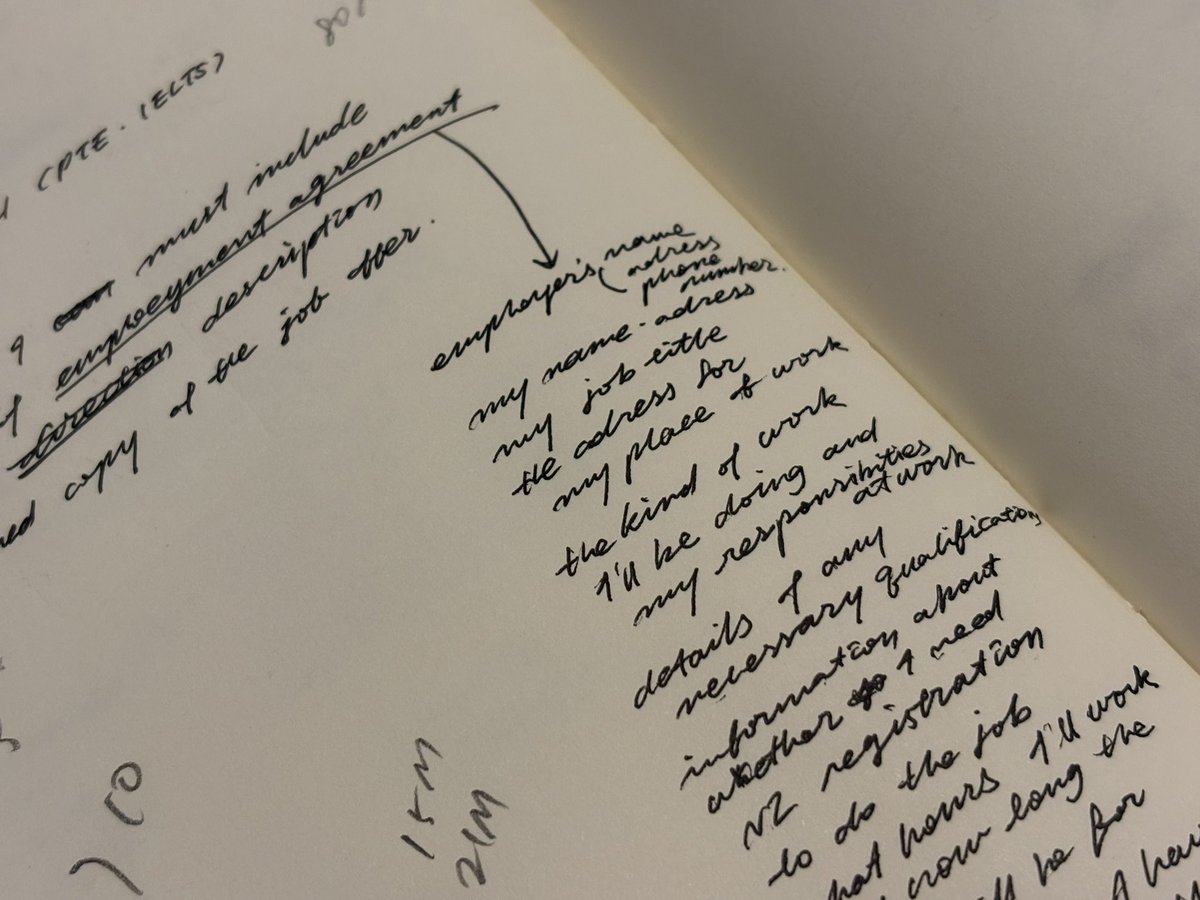 (PTE. IELTS)
must include
employment agreement
description
copy of the job offer.
employer's (name
adress
phone
number.
my name. adress
my job title
the adress for
my place of work
the kind of work
I'll be doing and
my responsibilities
at work
details of any
necessary qualification
information about
whether I need
NZ registration
to do the job
hours I'll work
long the
be for
15M
21M